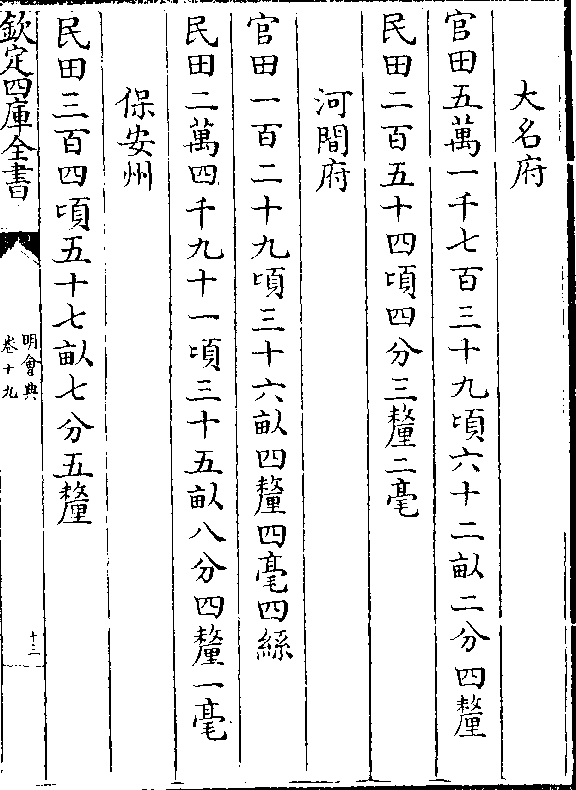 大名府
官田五萬一千七百三十九頃六十二畝二分四釐
民田二百五十四頃四分三釐二毫
河間府
官田一百二十九頃三十六畝四釐四毫四絲
民田二萬四千九十一頃三十五畝八分四釐一毫
保安州
民田三百四頃五十七畝七分五釐
欽定四庫全書
明會典
卷十九
十三